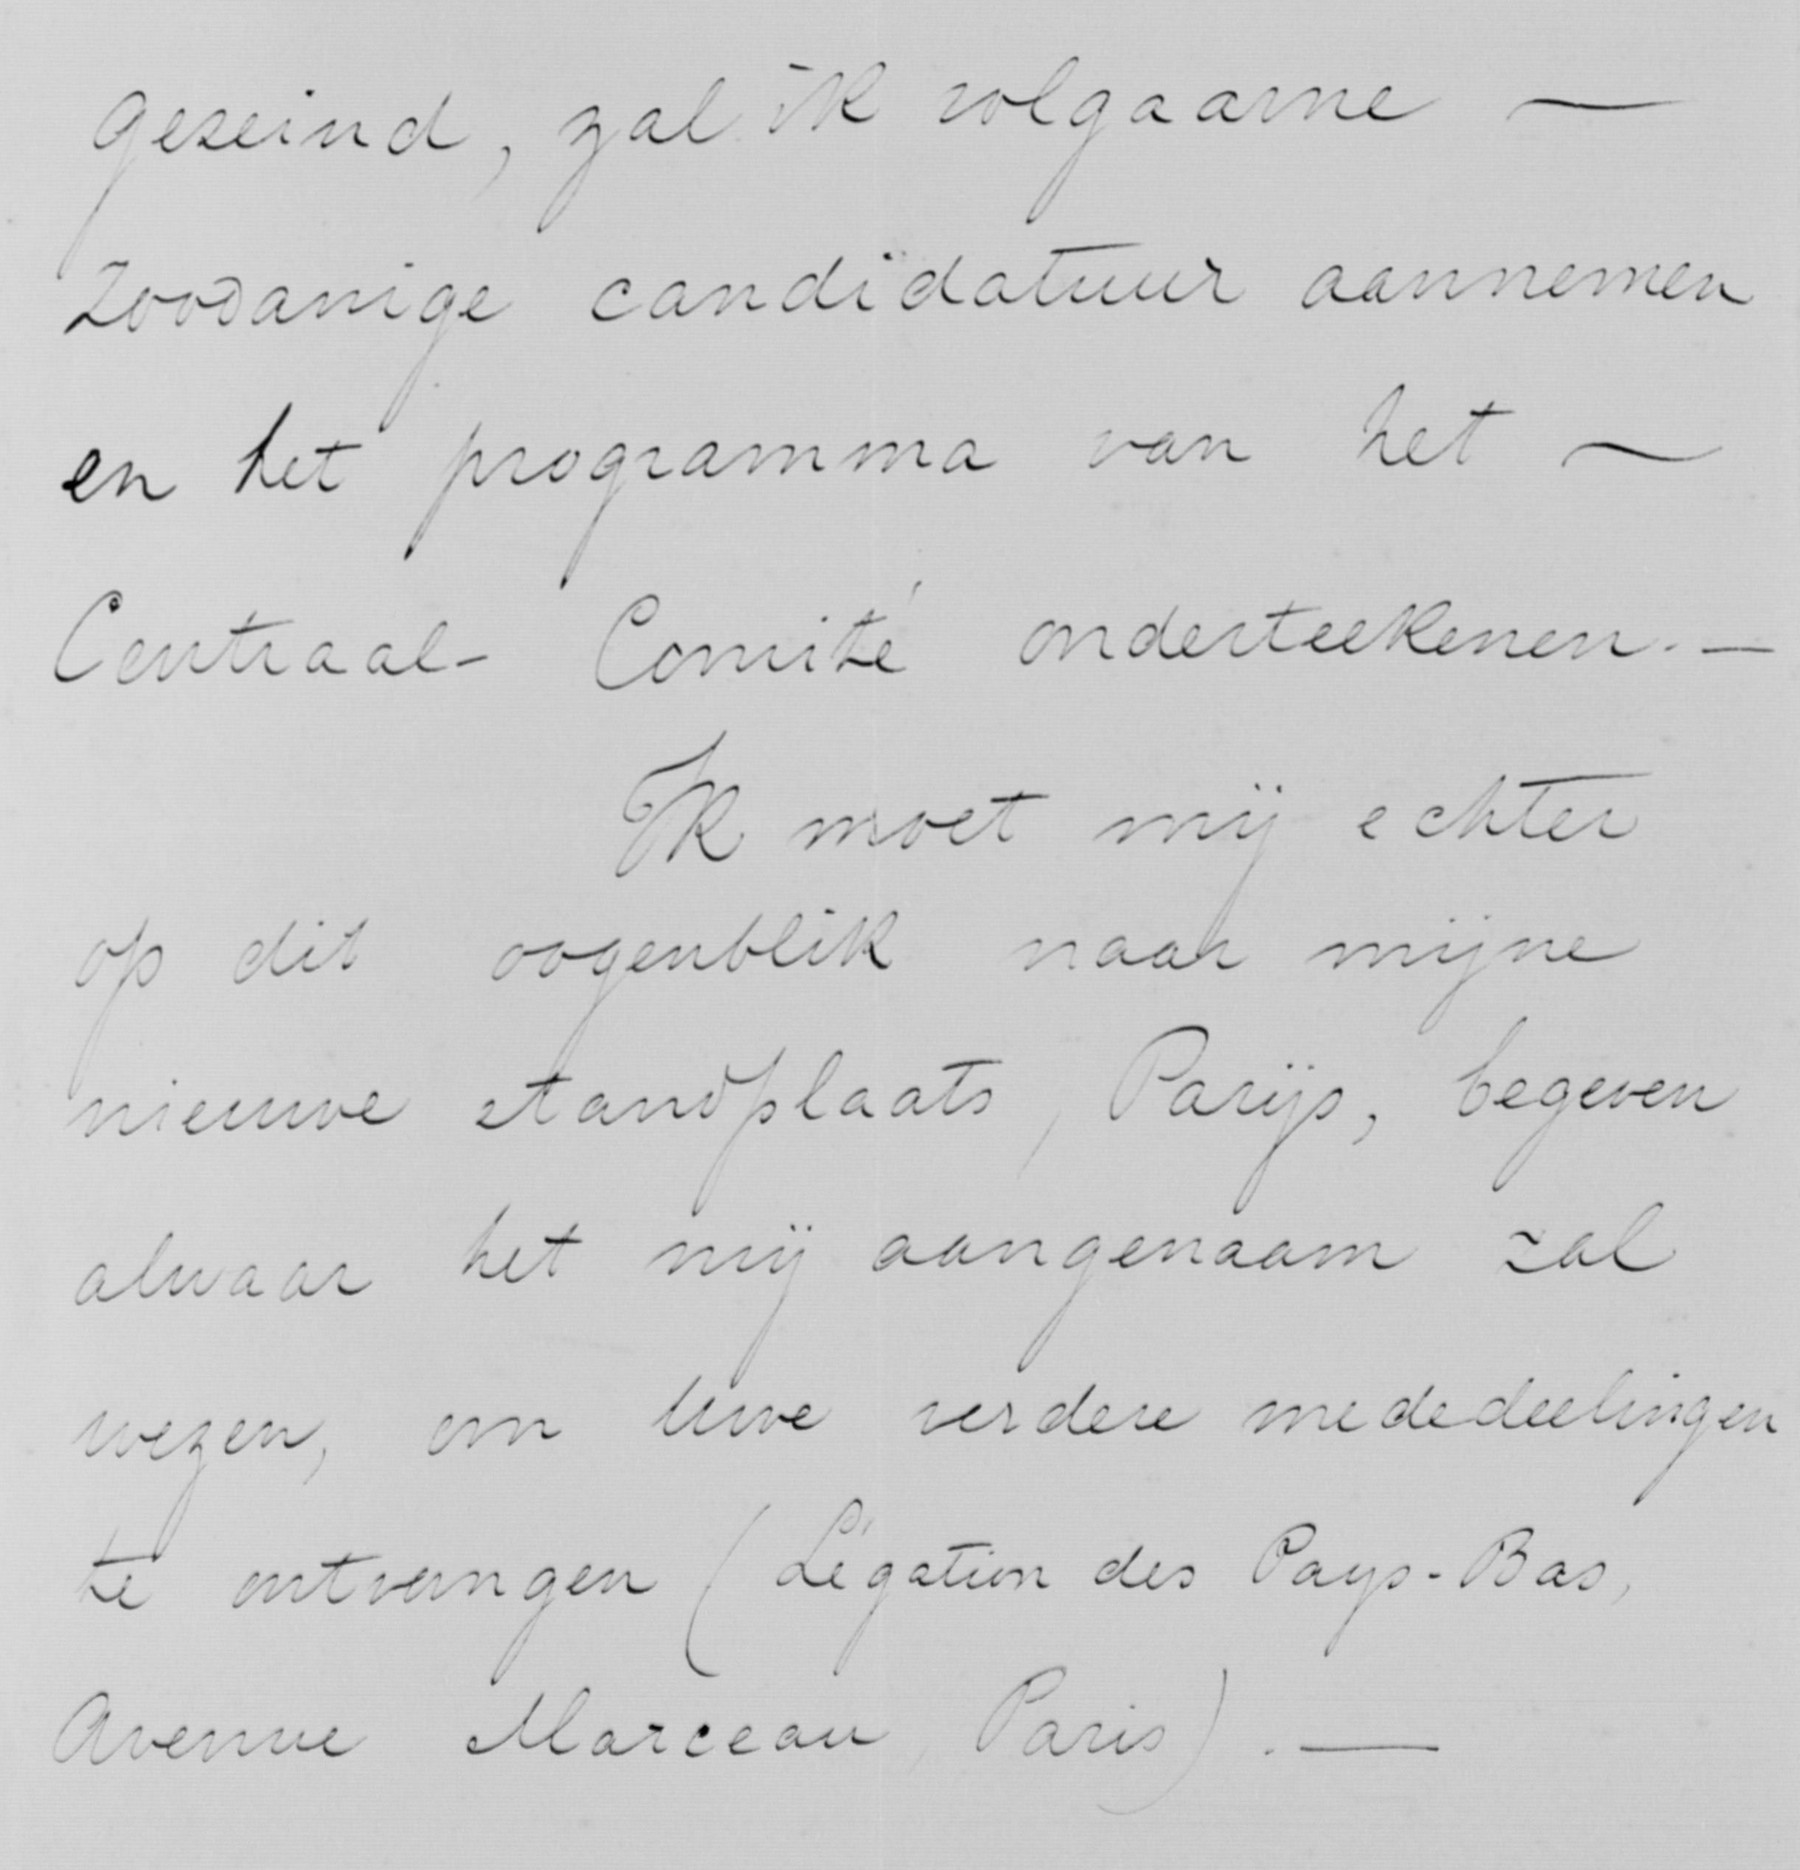 geseind, zal ik volgaarne —
zoodanige candidatuur aannemen
en het programma van het ~
Centraal- Comité onderteekenen. —
Ik moet mij echter
op dit oogenblik naar mijne
nieuwe standplaats, Parijs, begeven
alwaar het mij aangenaam zal
wezen, om Uwe verdere mededeelingen
te ontvangen (Légation des Pays-Bas,
Avenue Marceau, Paris). —